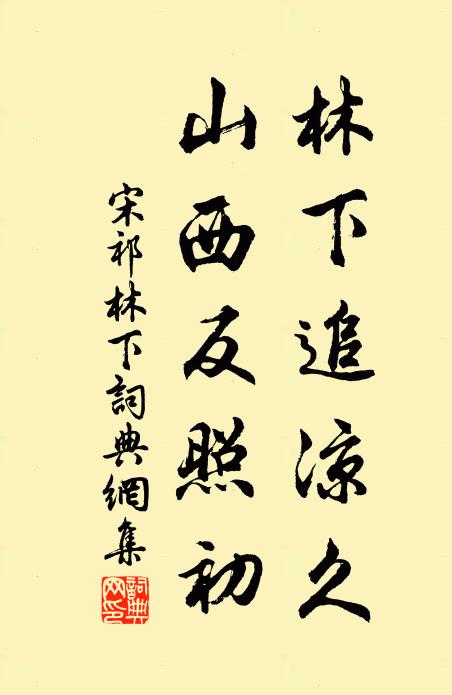 林下追涼久
山西反照初
宋祁林下詞典網集
詞典網印